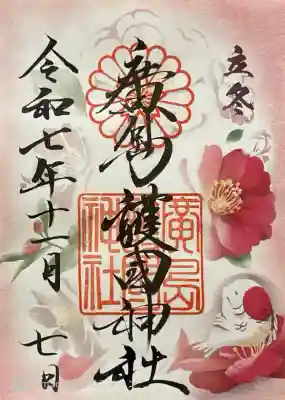 立冬
廣島護國神社
廣島護國神社
令和七年十一月七日